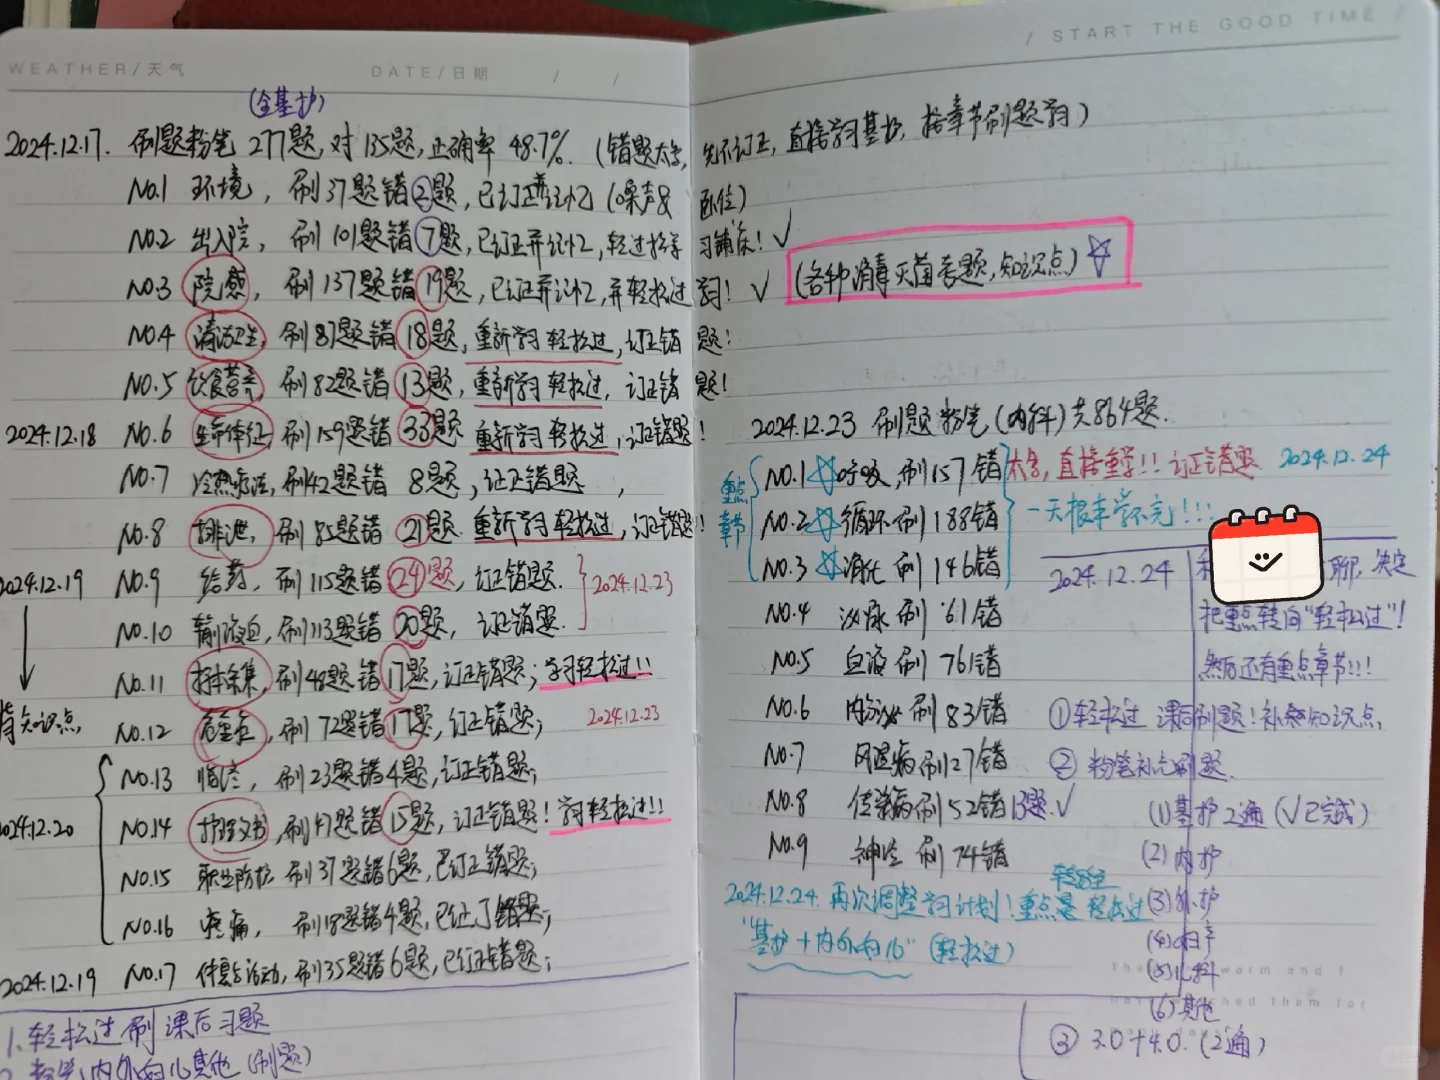 WEATHER/天气 DATE/日期 / /
(全基护)
2024.12.17. 刷题粉笔 277题,对135题,正确率 48.7%. (错题太多,
NO.1 环境, 刷37题错②题,已订正并记忆 (噪声&
NO.2 出入院, 刷101题错⑦题,已订正并记忆,轻过
NO.3 院感, 刷137题错19题,已订正并记忆,并轻松过
NO.4 清洁卫生, 刷87题错18题,重新学习轻松过,订正错
NO.5 饮食营养, 刷82题错13题,重新学习轻松过,订正错
2024.12.18 NO.6 生命体征,刷159题错33题 重新学习轻松过,订正错题!
NO.7 冷热疗法,刷42题错 8题,订正错题,
NO.8 排泄, 刷85题错21题.重新学习轻松过,订正错题!
2024.12.19 NO.9 给药, 刷115题错24题,订正错题. 2024.12.23
NO.10 输液, 刷113题错20题, 订正错题.
NO.11 标本采集,刷48题错17题,订正错题;学习轻松过!!
知识点, NO.12 危重症, 刷72题错17题,订正错题; 2024.12.23
NO.13 临终, 刷23题错4题,订正错题;
2024.12.20 NO.14 护理文书,刷47题错15题,订正错题!学习轻松过!!
NO.15 职业防护 刷37题错6题,已订正错题;
NO.16 疼痛, 刷18题错4题,已订正了错题;
2024.12.19 NO.17 休息与活动,刷35题错6题,已订正错题;
1.轻松过 刷 课后习题
2.粉笔,内外妇儿其他 (刷题)
/ START THE GOOD TIME / /
先不订正,直接学习基护,按章节刷题学习)
卧位)
习铺床!√
习! √ (各种消毒灭菌专题,知识点)☆
题!
题!
2024.12.23 刷题粉笔(内科)共864题.
重点章节
NO.1 ☆呼吸,刷157错 太多,直接重学!!订正错题 2024.12.24
NO.2 ☆循环 刷188错 一天根本学不完!!!
NO.3 ☆消化 刷146错
NO.4 泌尿 刷 61错
NO.5 血液 刷 76错
NO.6 内分泌 刷83错
NO.7 风湿病刷27错
NO.8 传染病刷52错13题.√
NO.9 神经 刷74错
2024.12.24.再次调整学习计划!重点是轻松过
"基护+内外妇儿"(轻松过)
2024.12.24 聊,决定
把重点转向"轻松过"!
然后还有重点章节!!!
①轻松过 课后刷题!补充知识点,
② 粉笔补充刷题.
(1)基护2遍(√已完成)
(2)内护
(3)外护
(4)妇产
(5)儿科
(6)其他
③ 3.0+4.0.(2遍)